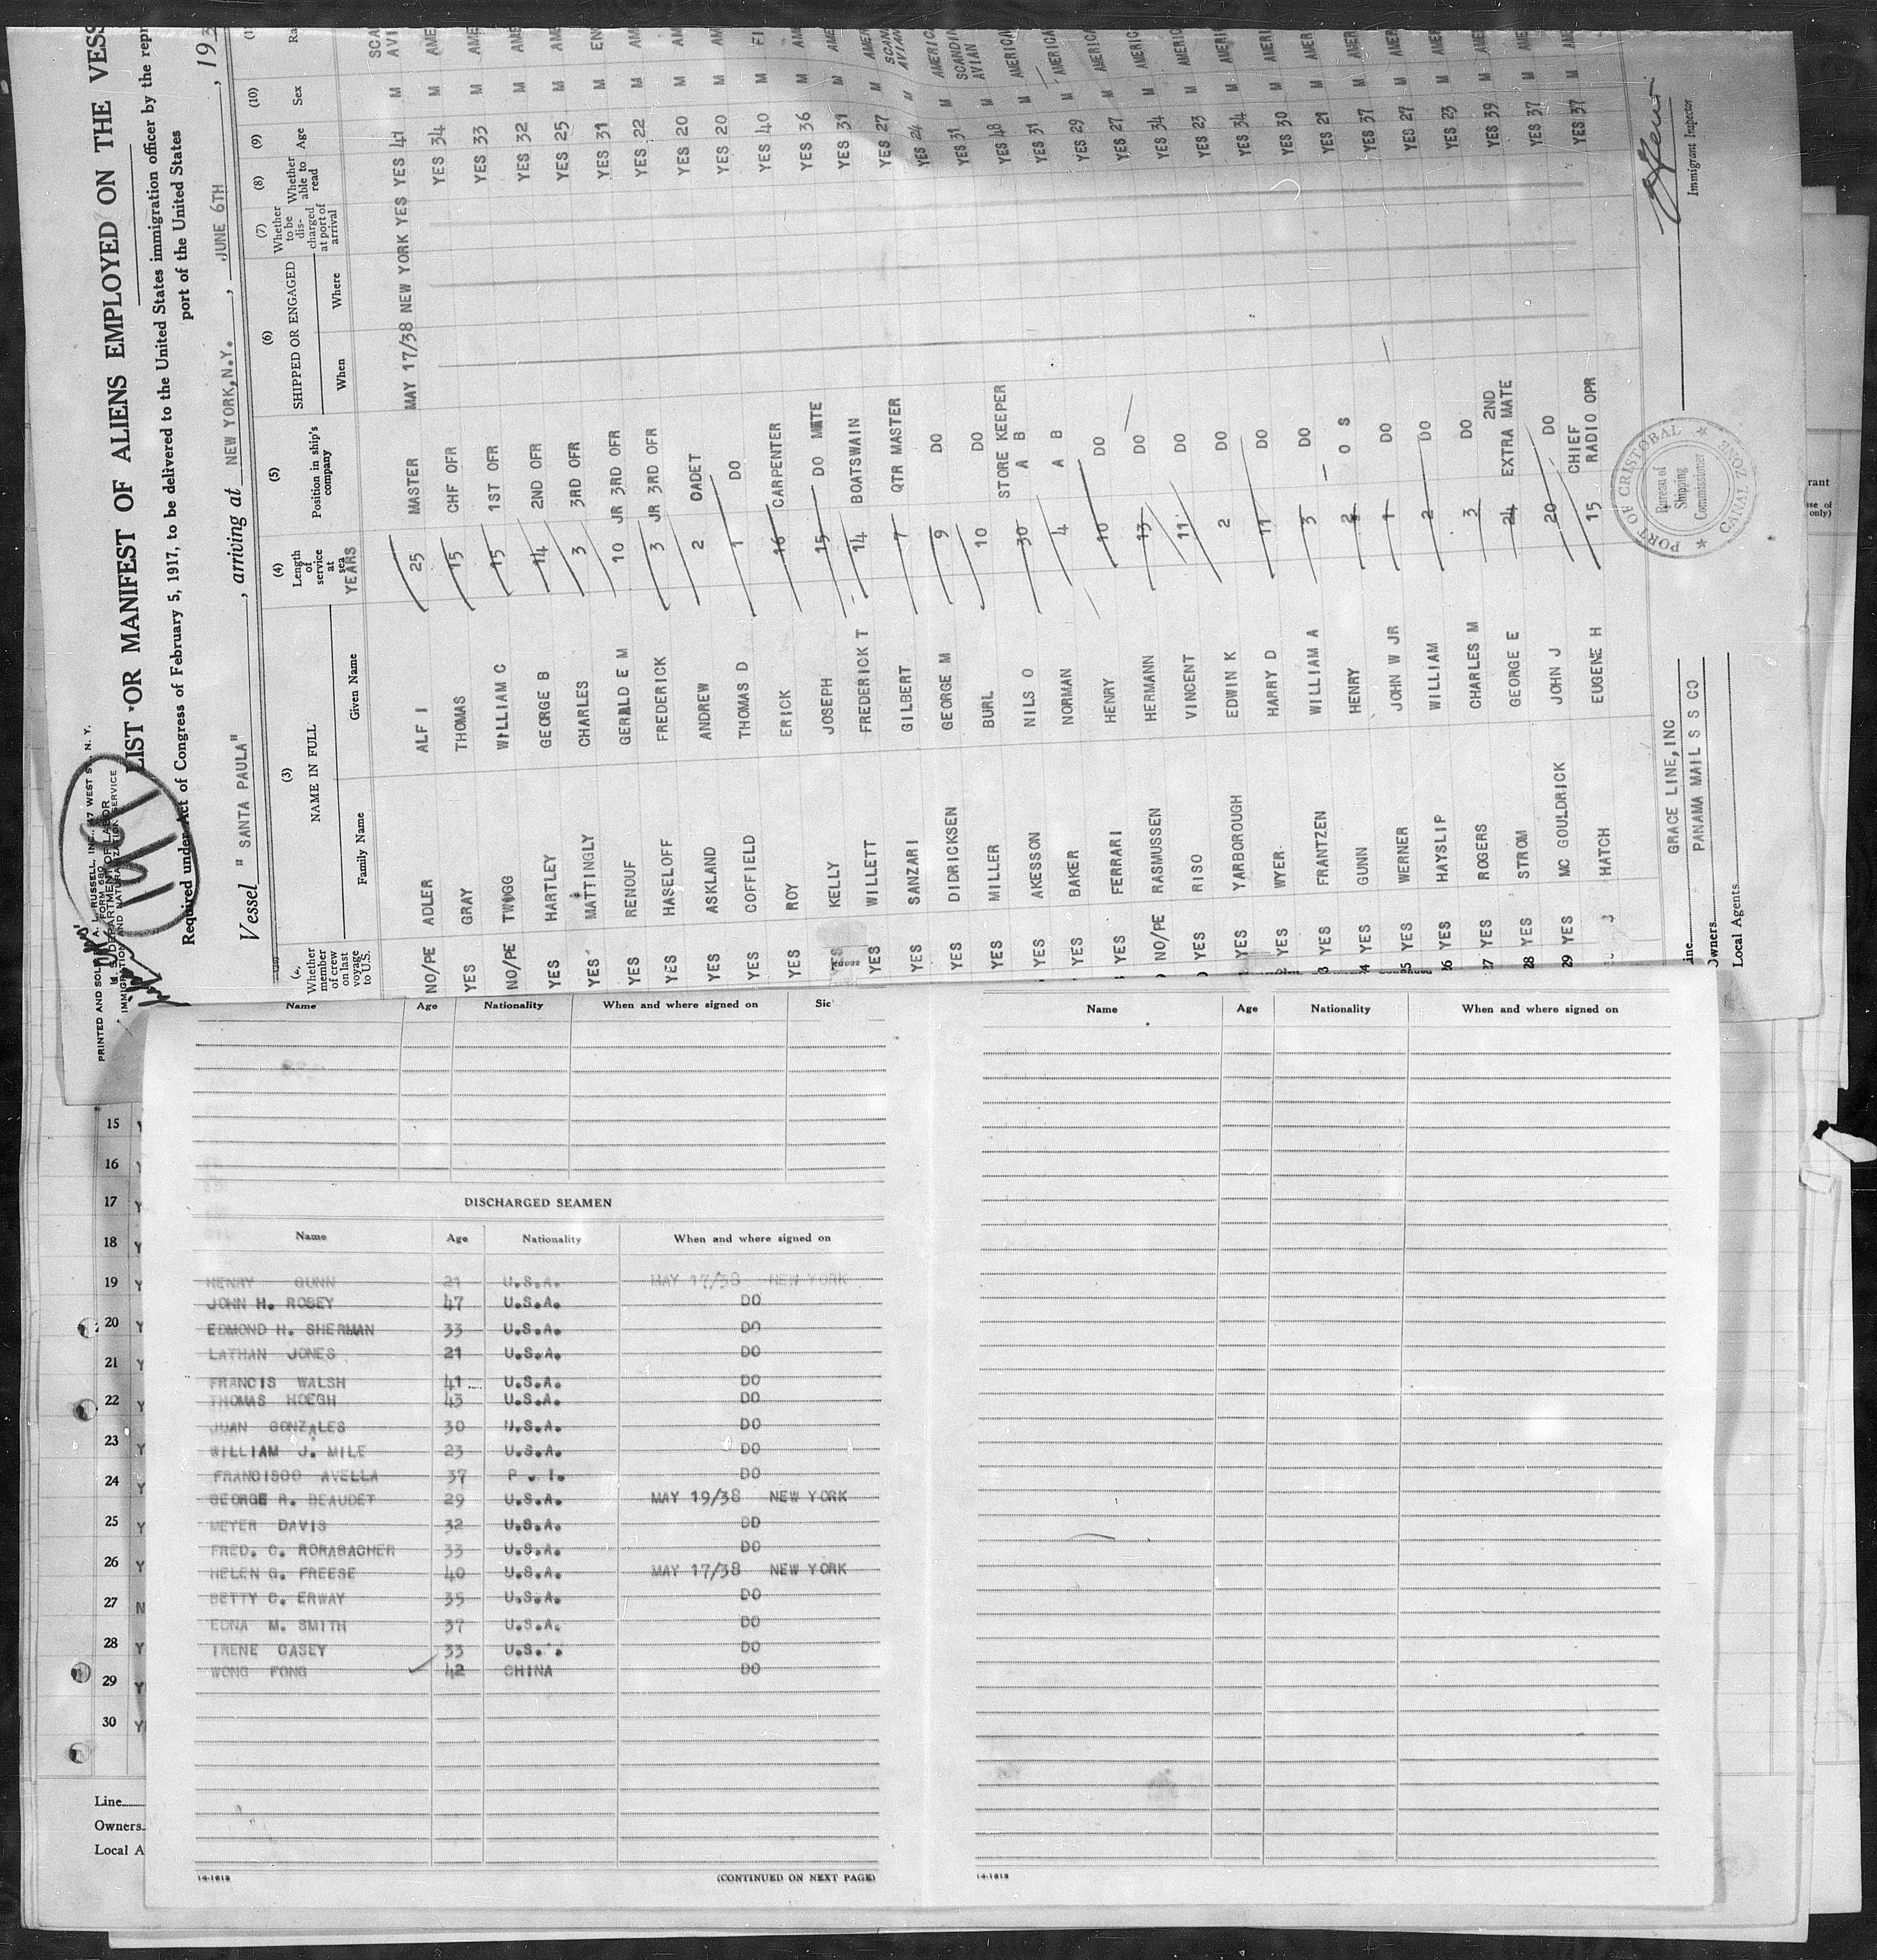 PRINTED AND SOLD BY A. L. RUSSELL, INC., 47 WEST ST., N. Y.
FORM 680
U. S. DEPARTMENT OF LABOR
IMMIGRATION AND NATURALIZATION SERVICE
LIST OR MANIFEST OF ALIENS EMPLOYED ON THE VESS
Required under Act of Congress of February 5, 1917, to be delivered to the United States immigration officer by the repr
port of the United States
Vessel " SANTA PAULA" , arriving at NEW YORK,N.Y. , JUNE 6TH , 193
(3) (4) (5) (6) (7) (8) (9) (10)
Whether member of crew on last voyage to U.S. NAME IN FULL Family Name Given Name Length of service at sea YEARS Position in ship's company SHIPPED OR ENGAGED When Where Whether to be discharged at port of arrival Whether able to read Age Sex Ra
NO/PE ADLER ALF I 25 MASTER MAY 17/38 NEW YORK YES YES 41 M SCA AVI
YES GRAY THOMAS 15 CHF OFR YES 34 M AME
NO/PE TWOGG WILLIAM C 15 1ST OFR YES 33 M AME
YES HARTLEY GEORGE B 14 2ND OFR YES 32 M AME
YES MATTINGLY CHARLES 3 3RD OFR YES 25 M AME
YES RENOUF GERALD E M 10 JR 3RD OFR YES 31 M EN
YES HASELOFF FREDERICK 3 JR 3RD OFR YES 22 M AM
YES ASKLAND ANDREW 2 CADET YES 20 M AM
YES COFFIELD THOMAS D 1 DO YES 20 M AM
YES ROY ERICK 16 CARPENTER YES 40 M FI
YES KELLY JOSEPH 15 DO MATE YES 36 M AME
YES WILLETT FREDERICK T 14 BOATSWAIN YES 31 M AME
YES SANZARI GILBERT 7 QTR MASTER YES 27 M AMER
YES DIDRICKSEN GEORGE M 9 DO YES 24 M SCAN AVIAN
YES MILLER BURL 10 DO YES 31 M AMERICA
YES AKESSON NILS O 30 STORE KEEPER YES 48 M SCANDIN AVIAN
YES BAKER NORMAN 4 A B YES 31 M AMERICA
YES FERRARI HENRY 10 A B YES 29 M AMERICA
NO/PE RASMUSSEN HERMANN 13 DO YES 27 M AMERICA
YES RISO VINCENT 11 DO YES 34 M AMERIC
YES YARBOROUGH EDWIN K 2 DO YES 23 M AMERIC
YES WYER HARRY D 11 DO YES 34 M AMERI
YES FRANTZEN WILLIAM A 3 DO YES 30 M AMERI
YES GUNN HENRY 2 O S YES 21 M AMER
25 YES WERNER JOHN W JR 1 DO YES 37 M AMER
26 YES HAYSLIP WILLIAM 2 DO YES 27 M AMER
27 YES ROGERS CHARLES M 3 DO YES 23 M AMER
28 YES STROM GEORGE E 24 2ND EXTRA MATE YES 39 M AME
29 YES MC GOULDRICK JOHN J 20 DO YES 37 M AME
HATCH EUGENE H 15 CHIEF RADIO OPR YES 37 M AM
Line GRACE LINE,INC
Owners PANAMA MAIL S S CO
Local Agents
PORT OF CRISTOBAL
Bureau of Shipping Commissioner
CANAL ZONE
Immigrant Inspector
Name Age Nationality When and where signed on
DISCHARGED SEAMEN
Name Age Nationality When and where signed on
HENRY GUNN 21 U.S.A. MAY 17/38 NEW YORK
JOHN H. ROBEY 47 U.S.A. DO
EDMOND H. SHERMAN 33 U.S.A. DO
LATHAN JONES 21 U.S.A. DO
FRANCIS WALSH 41 U.S.A. DO
THOMAS HOEGH 43 U.S.A. DO
JUAN GONZALES 30 U.S.A. DO
WILLIAM J. MILE 23 U.S.A. DO
FRANCISCO AVELLA 37 P. I. DO
GEORGE R. BEAUDET 29 U.S.A. MAY 19/38 NEW YORK
MEYER DAVIS 32 U.S.A. DO
FRED. C. RORABACHER 33 U.S.A. DO
HELEN G. FREESE 40 U.S.A. MAY 17/38 NEW YORK
BETTY C. ERWAY 35 U.S.A. DO
EDNA M. SMITH 37 U.S.A. DO
IRENE CASEY 33 U.S. DO
WONG FONG 42 CHINA DO
14-1818
(CONTINUED ON NEXT PAGE)
Name Age Nationality When and where signed on
14-1818
15
16
17
18
19
20
21
22
23
24
25
26
27
28
29
30
Line
Owners
Local A